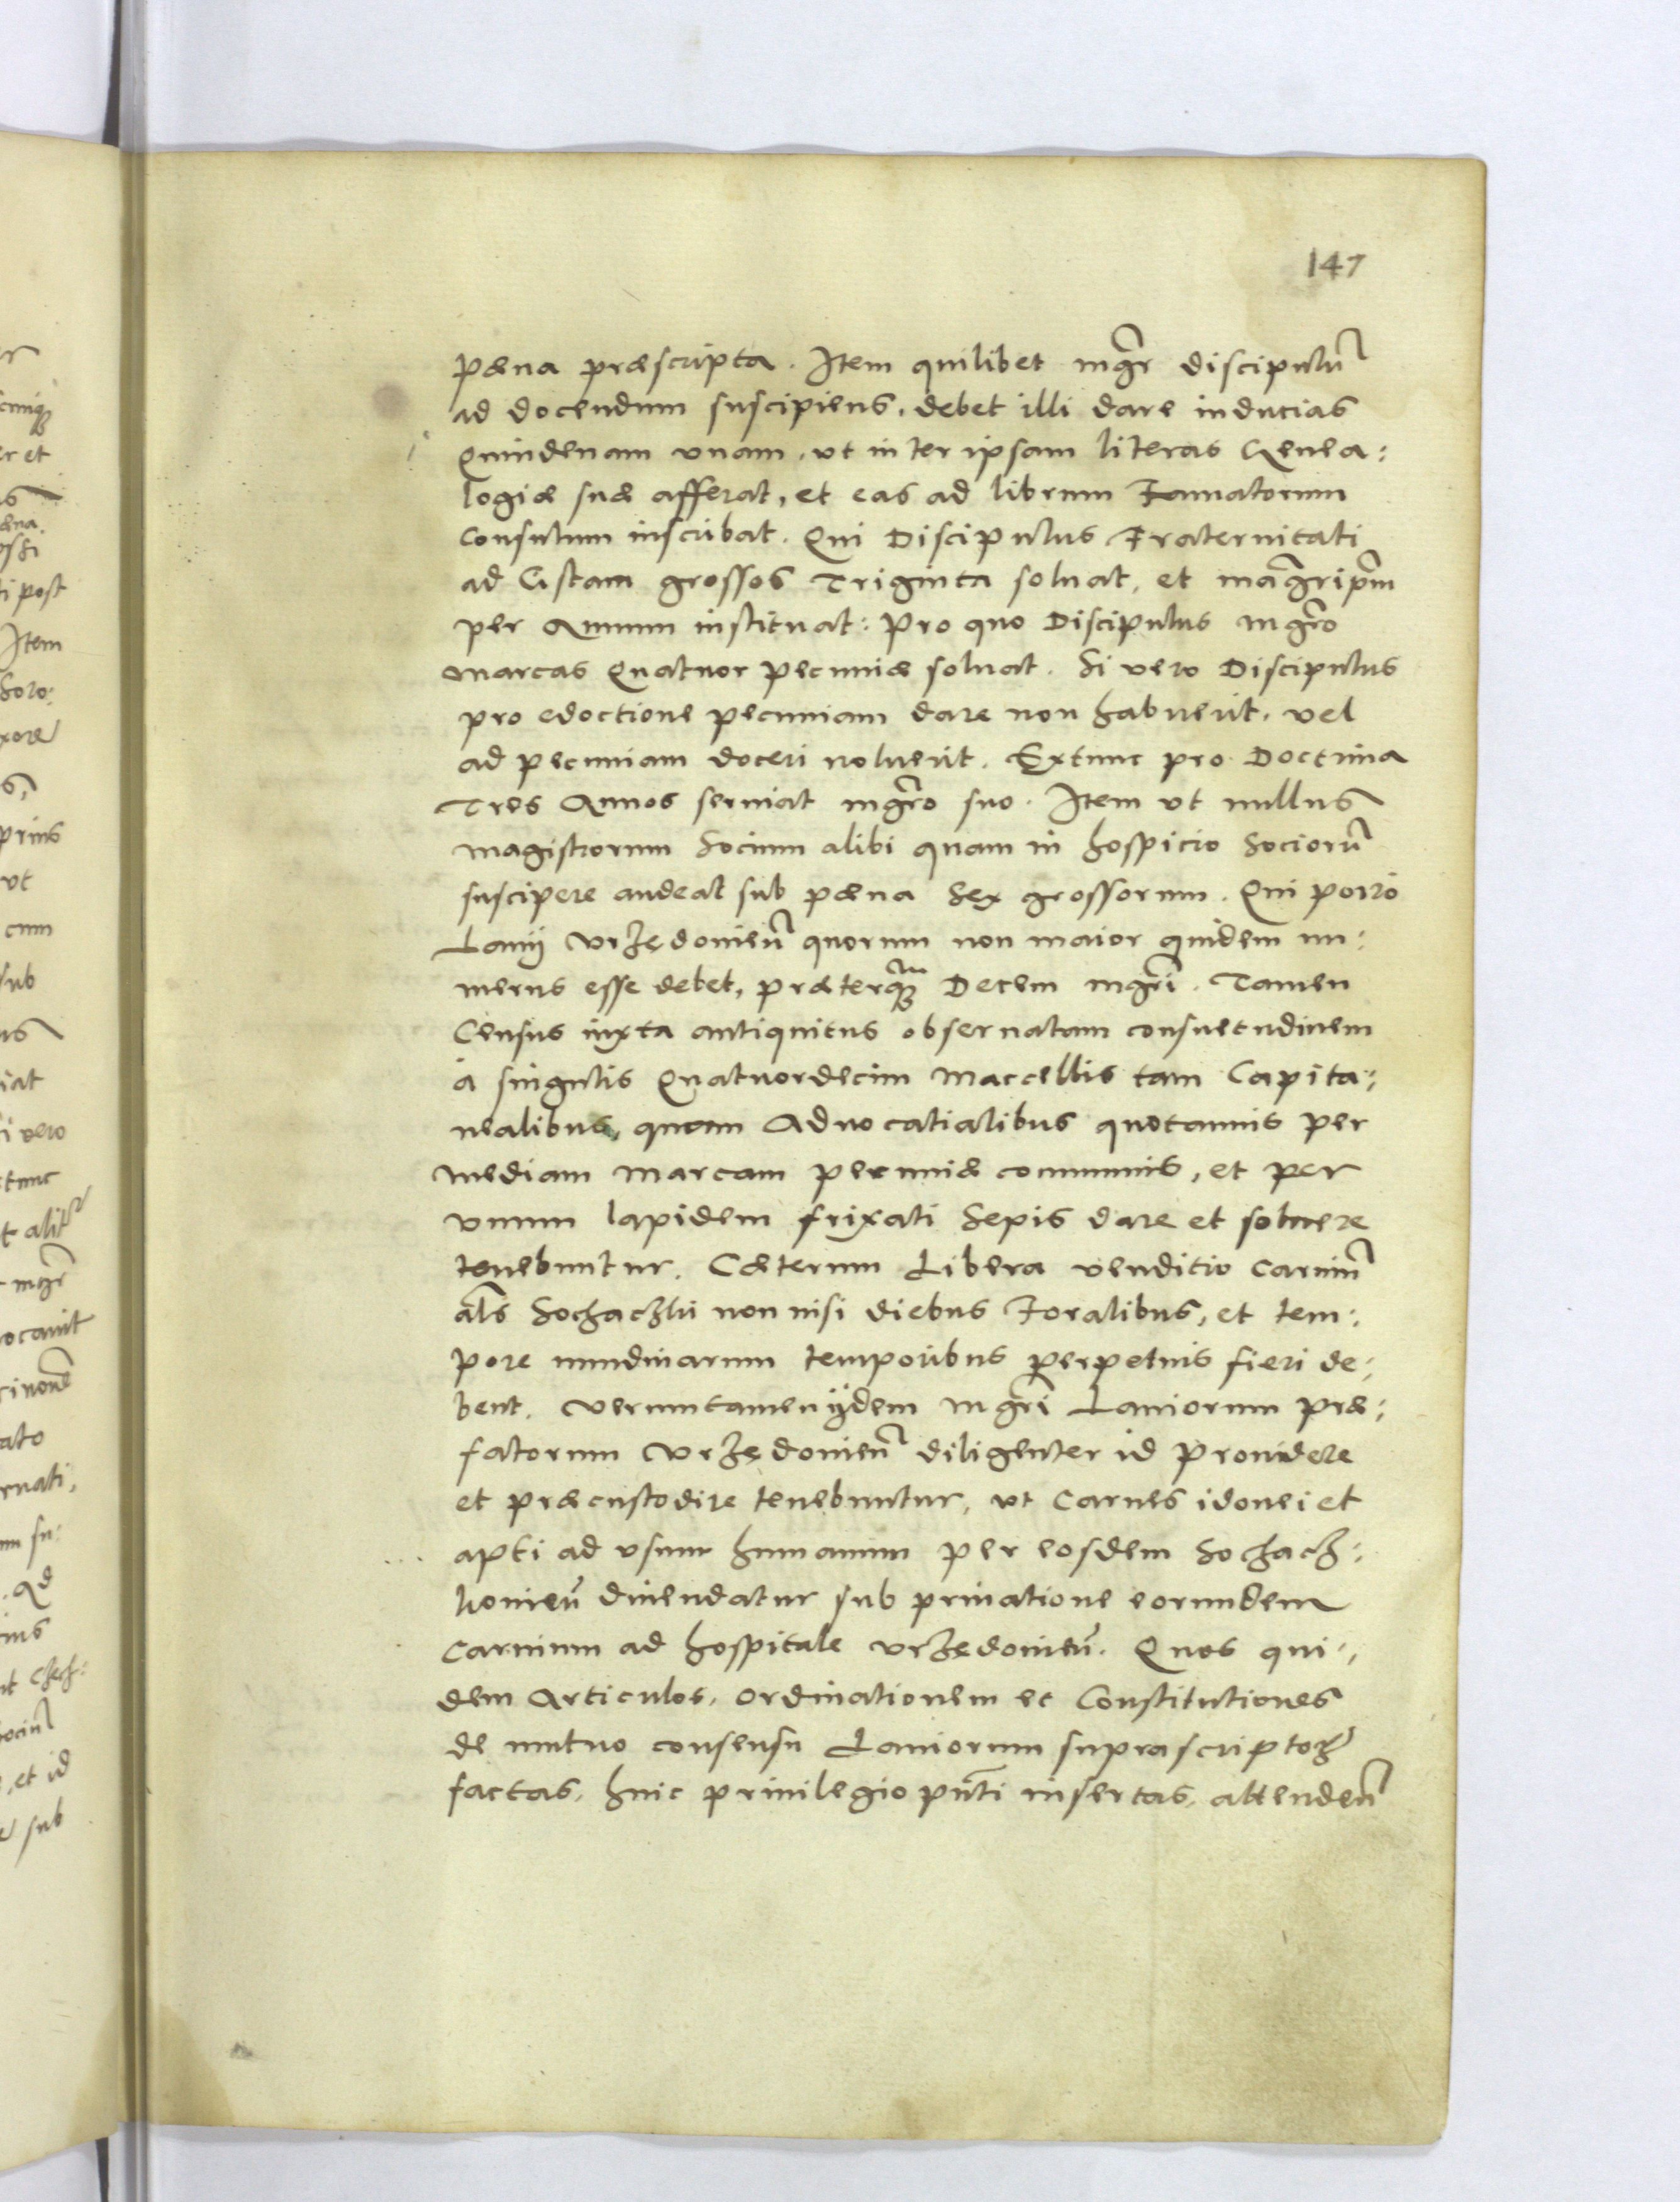 147
pæna præscripta. Item quilibet mgr̄ discipulū
ad docendum suscipiens, debet illi dare inducias
Quindenam vnam, vt inter ipsam literas Genea:
logiæ suæ afferat, et eas ad librum Famatorum
Consulum inscribat. Qui Discipulus Fraternitati
ad Cistam grossos Triginta soluat, et
per Annum instituat: Pro quo Discipulus mgr̄o
marcas Quatuor pecuniæ soluat. Si vero Discipulus
pro edoctione pecuniam dare non habuerit, vel
ad pecuniam doceri noluerit. Extunc pro Doctrina
Tres Annos seruiat mgr̄o suo. Item vt nullus
magistrorum Socium alibi quam in hospicio Sociorū
suscipere audeat sub pæna Sex grossorum. Qui porro
Lanij Vrzędovien̄ quorum non maior quidem nu:
merus esse debet, præterq̄ Decem mgr̄i. Tamen
Census iuxta antiquitus obseruatam consuetudinem
à singulis Quatuordecim Maccellis tam Capita:
nealibus, quam Aduocatialibus quotannis per
mediam marcam pecuniæ communis, et per
vnum lapidem frixati Sepis dare et soluere
tenebuntur. Cæterum Libera venditio carniū
al̄s Sochaczki non nisi diebus Foralibus, et tem:
pore nundinarum temporibus perpetuis fieri de:
bent. Veruntamen ijdem mgr̄i Laniorum præ:
fatorum Vrzędovien̄ diligenter id prouidere
et præcustodire tenebuntur, vt Carnes idonei et
apti ad vsum humanum per eosdem Sochacz:
kovien̄ diuendatur sub priuatione eorundem
Carnium ad hospitale Vrzędovien̄. Quos qui:
dem Articulos, Ordinationem et Constitutiones
de mutuo consensu Laniorum suprascriptoꝝ
factas, huic priuilegio pn̄ti insertas, attenden̄